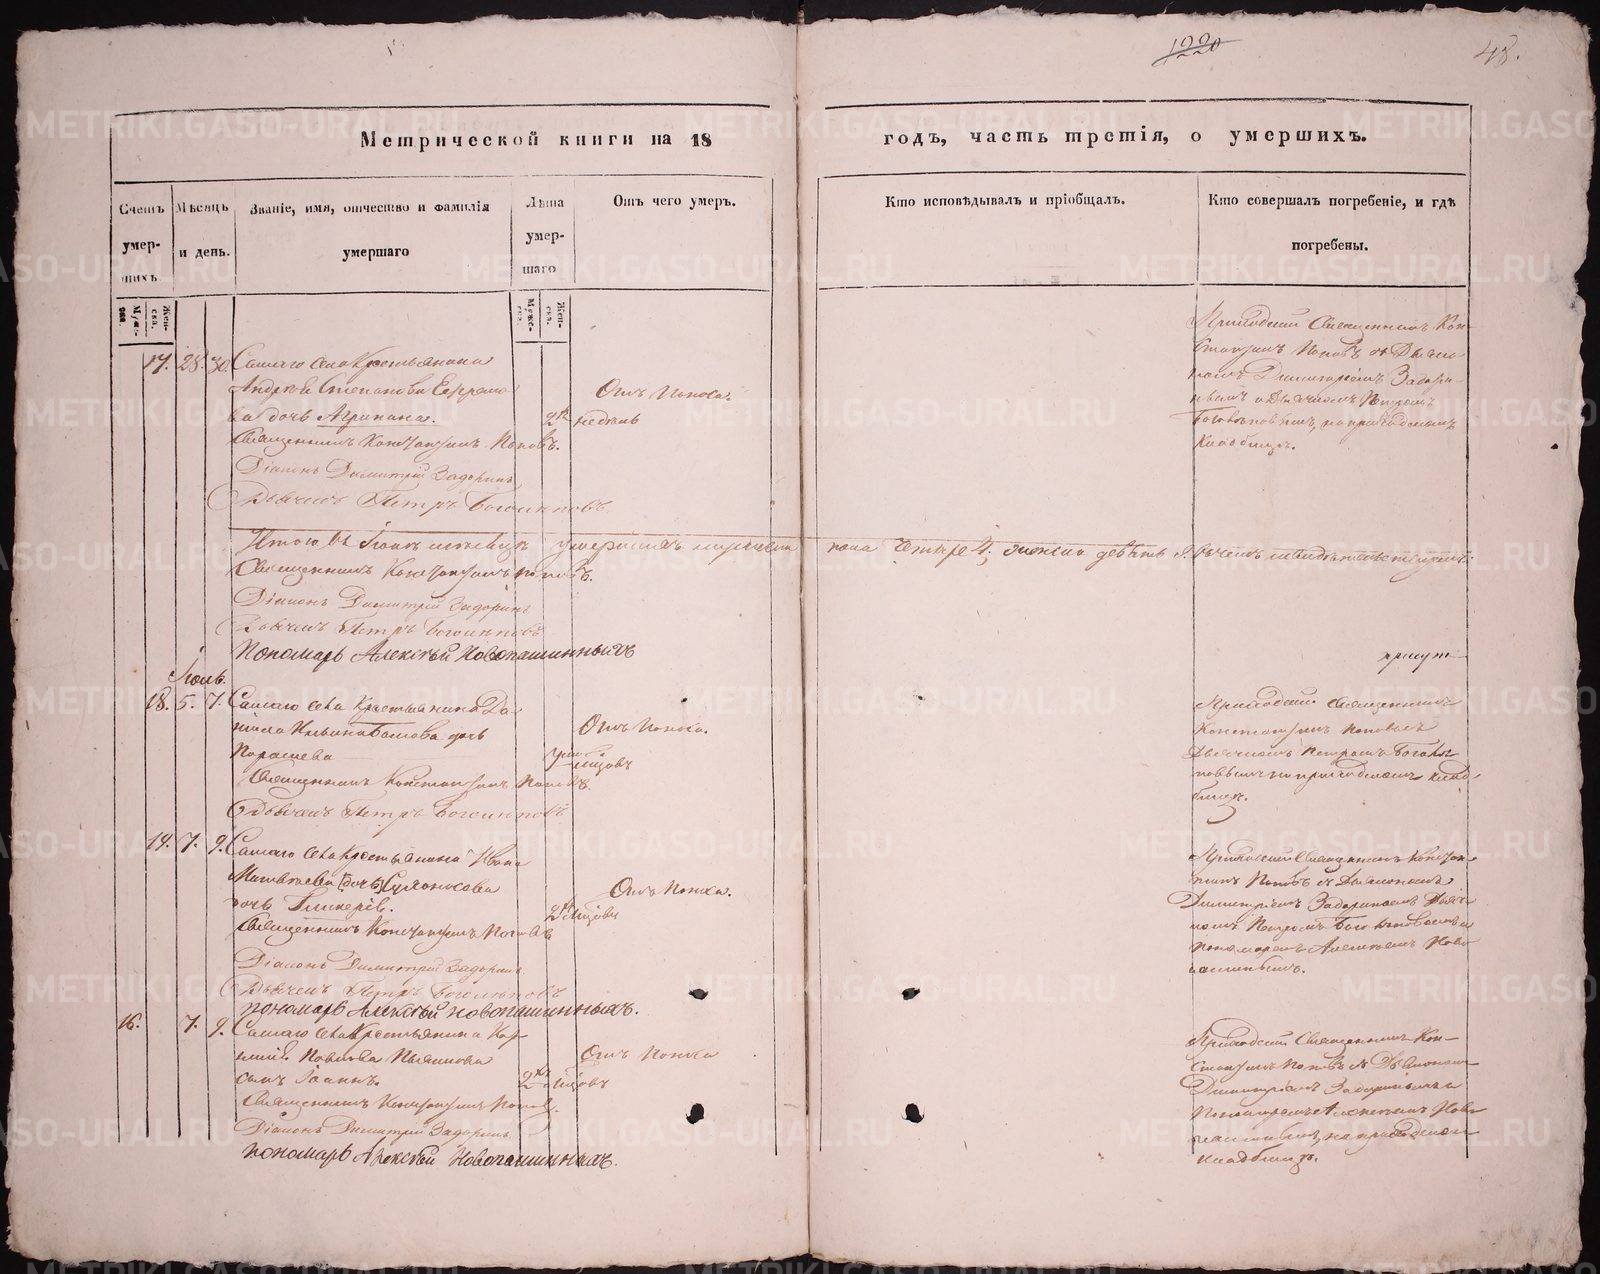 1220
48.
Метрической книги на 18
годъ, часть третія, о умершихъ.
Счетъ умер-шихъ.
Мѣсяцъ и день.
Званіе, имя, отчество и фамилія умершаго
Лѣта умер-шаго
Отъ чего умеръ.
Кто исповѣдывалъ и пріобщалъ.
Кто совершалъ погребеніе, и гдѣ погребены.
Муже-ска.
Жен-ска.
Муже-ска.
Жен-ска.
17. 28. 30. Самаго села Крестьянина
Андрея Степанова
дочь Агрипина.
Отъ поноса.
2хъ недѣль
Священникъ Константинъ Поповъ.
Діаконъ Димитрій Задоринъ
Дьячекъ Петръ Боголѣповъ
Приходскій Священникъ Кон-
стантинъ Поповъ съ Діако-
номъ Димитріемъ Задори-
нымъ и Дьячкомъ Петромъ
Боголѣповымъ, на приходскомъ
кладбищѣ.
Итого въ Іюнѣ мѣсяцѣ умершихъ мужеска пола четыре 4, женска девять 9.
Священникъ Константинъ Поповъ.
Діаконъ Димитрій Задоринъ
Дьячекъ Петръ Боголѣповъ
Пономарь Алексѣй Новопашинныхъ
Іюль.
18. 5. 7. Самаго села Крестьянина Да-
нила дочь
Отъ поноса.
мѣсяцовъ
Священникъ Константинъ Поповъ.
Дьячекъ Петръ Боголѣповъ
Приходскій Священникъ
Константинъ Поповъ съ
Дьячкомъ Петромъ Боголѣ-
повымъ на приходскомъ клад-
бищѣ.
19. 7. 9. Самаго села Крестьянина Ивана
Матвѣева
дочь Гликерія.
Отъ поноса.
2хъ мѣсяцовъ
Священникъ Константинъ Поповъ
Діаконъ Димитрій Задоринъ
Дьячекъ Петръ Боголѣповъ
пономарь Алексѣй Новопашинныхъ.
Приходскій Священникъ Констан-
тинъ Поповъ съ Діакономъ
Димитріемъ Задоринымъ Дьяч-
комъ Петромъ Боголѣповымъ и
Пономаремъ Алексѣемъ Ново-
пашиннымъ.
16. 7. 9. Самаго села Крестьянина
Павлова
сынъ Іоаннъ.
Отъ поноса
2хъ мѣсяцовъ
Священникъ Константинъ Поповъ.
Діаконъ Димитрій Задоринъ
пономарь Алексѣй Новопашинныхъ.
Приходскій Священникъ Кон-
стантинъ Поповъ съ Діакономъ
Димитріемъ Задоринымъ и
Пономаремъ Алексѣемъ Ново-
пашиннымъ, на приходскомъ
кладбищѣ.
METRIKI.GASO-URAL.RU